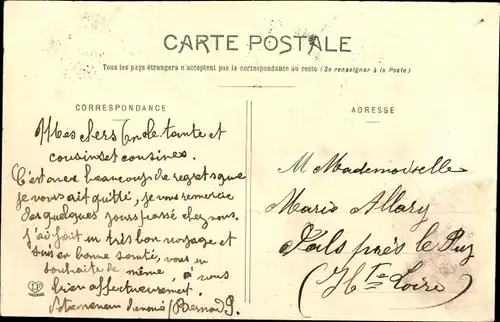 CARTE POSTALE
Tous les pays étrangers n'acceptent pas la correspondance au recto (Se renseigner à la Poste)
CORRESPONDANCE
ADRESSE
Mes chers Oncle tante et
cousins et cousines.
C'est avec beaucoup de regrets que
je vous ait quitté, je vous remercie
des quelques jours passé chez vous.
J'ai fait un très bon voyage et
suis en bonne santé, vous en
souhaite de même, à vous
bien affectueusement.
Bernard
M Mademoiselle
Marie Allary
près le Puy
(Hte Loire)